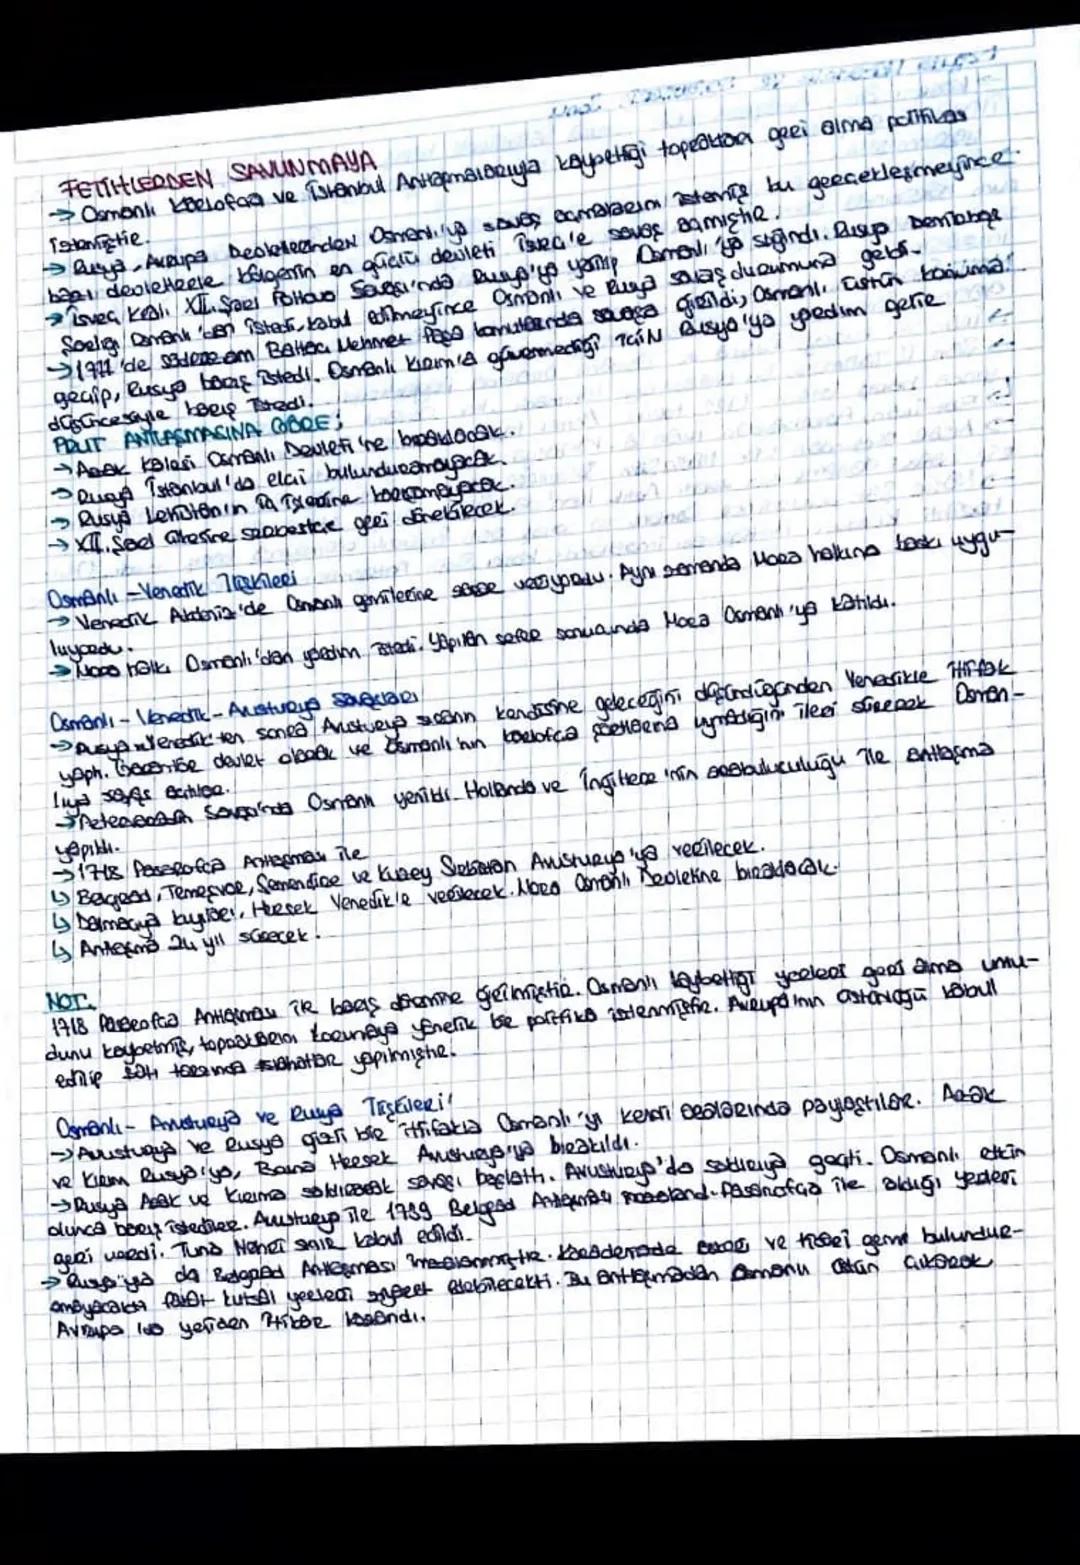 FETİHLERDEN SAVUNMAYA
→ Osmanlı Karlofça ve İstanbul Antlaşmalarıyla kaybettiği toprakları geri alma politikası
istemiştir.
→ Rusya, Avrupa Devletlerinden Osmanlı'ya savaş açmalarını istemiş bu gerçekleşmeyince
bazı devletlerle bölgenin en güçlü devleti İsveç'e savaş açmıştır.
→ İsveç Kralı XII. Şarl Poltova Savaşı'nda Rusya'ya yenilip Osmanlı'ya sığındı. Rusya Demirbaş
Şarlığı Osmanlı'dan istedi, kabul edilmeyince Osmanlı ve Rusya savaş durumuna geldi.
→ 1711'de sadrazam Baltacı Mehmet Paşa komutasında savaşa girildi, Osmanlı üstün konuma
geçip, Rusya barış istedi. Osmanlı Kırım'a güvenmediği için Rusya'ya yardım gelir
düşüncesiyle barış istedi.
PRUT ANTLAŞMASINA GÖRE;
→ Azak Kalesi Osmanlı Devleti'ne bırakılacak.
→ Rusya İstanbul'da elçi bulunduramayacak.
→ Rusya Lehistan'ın iç işlerine karışamayacak.
→ XII. Şarl ülkesine serbestçe geri dönebilecek.
Osmanlı - Venedik İlişkileri
→ Venedik Akdeniz'de Osmanlı gemilerine zarar veriyordu. Aynı zamanda Mora halkına baskı uygu-
luyordu.
→ Mora halkı Osmanlı'dan yardım istedi. Yapılan sefer sonucunda Mora Osmanlı'ya katıldı.
Osmanlı - Venedik - Avusturya Savaşları
→ Rusya Venedik'ten sonra Avusturya sıranın kendisine geleceğini düşündüğünden Venedikle ittifak
yaptı. devlet olarak ve Osmanlı'nın Karlofça şartlarına uymadığını ileri sürerek Osman-
lıya savaş açtılar.
→ Petervaradin Savaşı'nda Osmanlı yenildi. Hollanda ve İngiltere'nin arabuluculuğu ile antlaşma
yapıldı.
→ 1718 Pasarofça Antlaşması ile
↳ Belgrad, Temeşvar, Semendire ve Kuzey Sırbistan Avusturya'ya verilecek.
↳ Dalmaçya kıyıları, Hersek Venedik'e verilecek. Mora Osmanlı Devletine bırakılacak.
↳ Antlaşma 24 yıl sürecek.
NOT:
1718 Pasarofça Antlaşması ile barış dönemine girilmiştir. Osmanlı kaybettiği yerleri geri alma umu-
dunu kaybetmiş, topraklarını korumaya yönelik bir politika izlenmiştir. Avrupa'nın üstünlüğü kabul
edilip batı tarzında ıslahatlar yapılmıştır.
Osmanlı - Avusturya ve Rusya İlişkileri
→ Avusturya ve Rusya gizli bir ittifakla Osmanlı'yı kendi aralarında paylaştılar. Azak
ve Kırım Rusya'ya, Bosna Hersek Avusturya'ya bırakıldı.
→ Rusya Azak ve Kırıma saldırarak savaşı başlattı. Avusturya'da saldırıya geçti. Osmanlı etkin
olunca barış istediler. Avusturya ile 1739 Belgrad Antlaşması imzalandı. Pasarofça ile aldığı yerleri
geri verdi. Tuna Nehri sınır kabul edildi.
→ Rusya'ya da Belgrad Antlaşması imzalanmıştır. Karadenizde savaş ve ticari gemi bulundur-
amayacaktı fakat kutsal yerleri ziyaret edebilecekti. Bu antlaşmadan Osmanlı üstün çıkarak
Avrupa'da yeniden itibar kazandı.